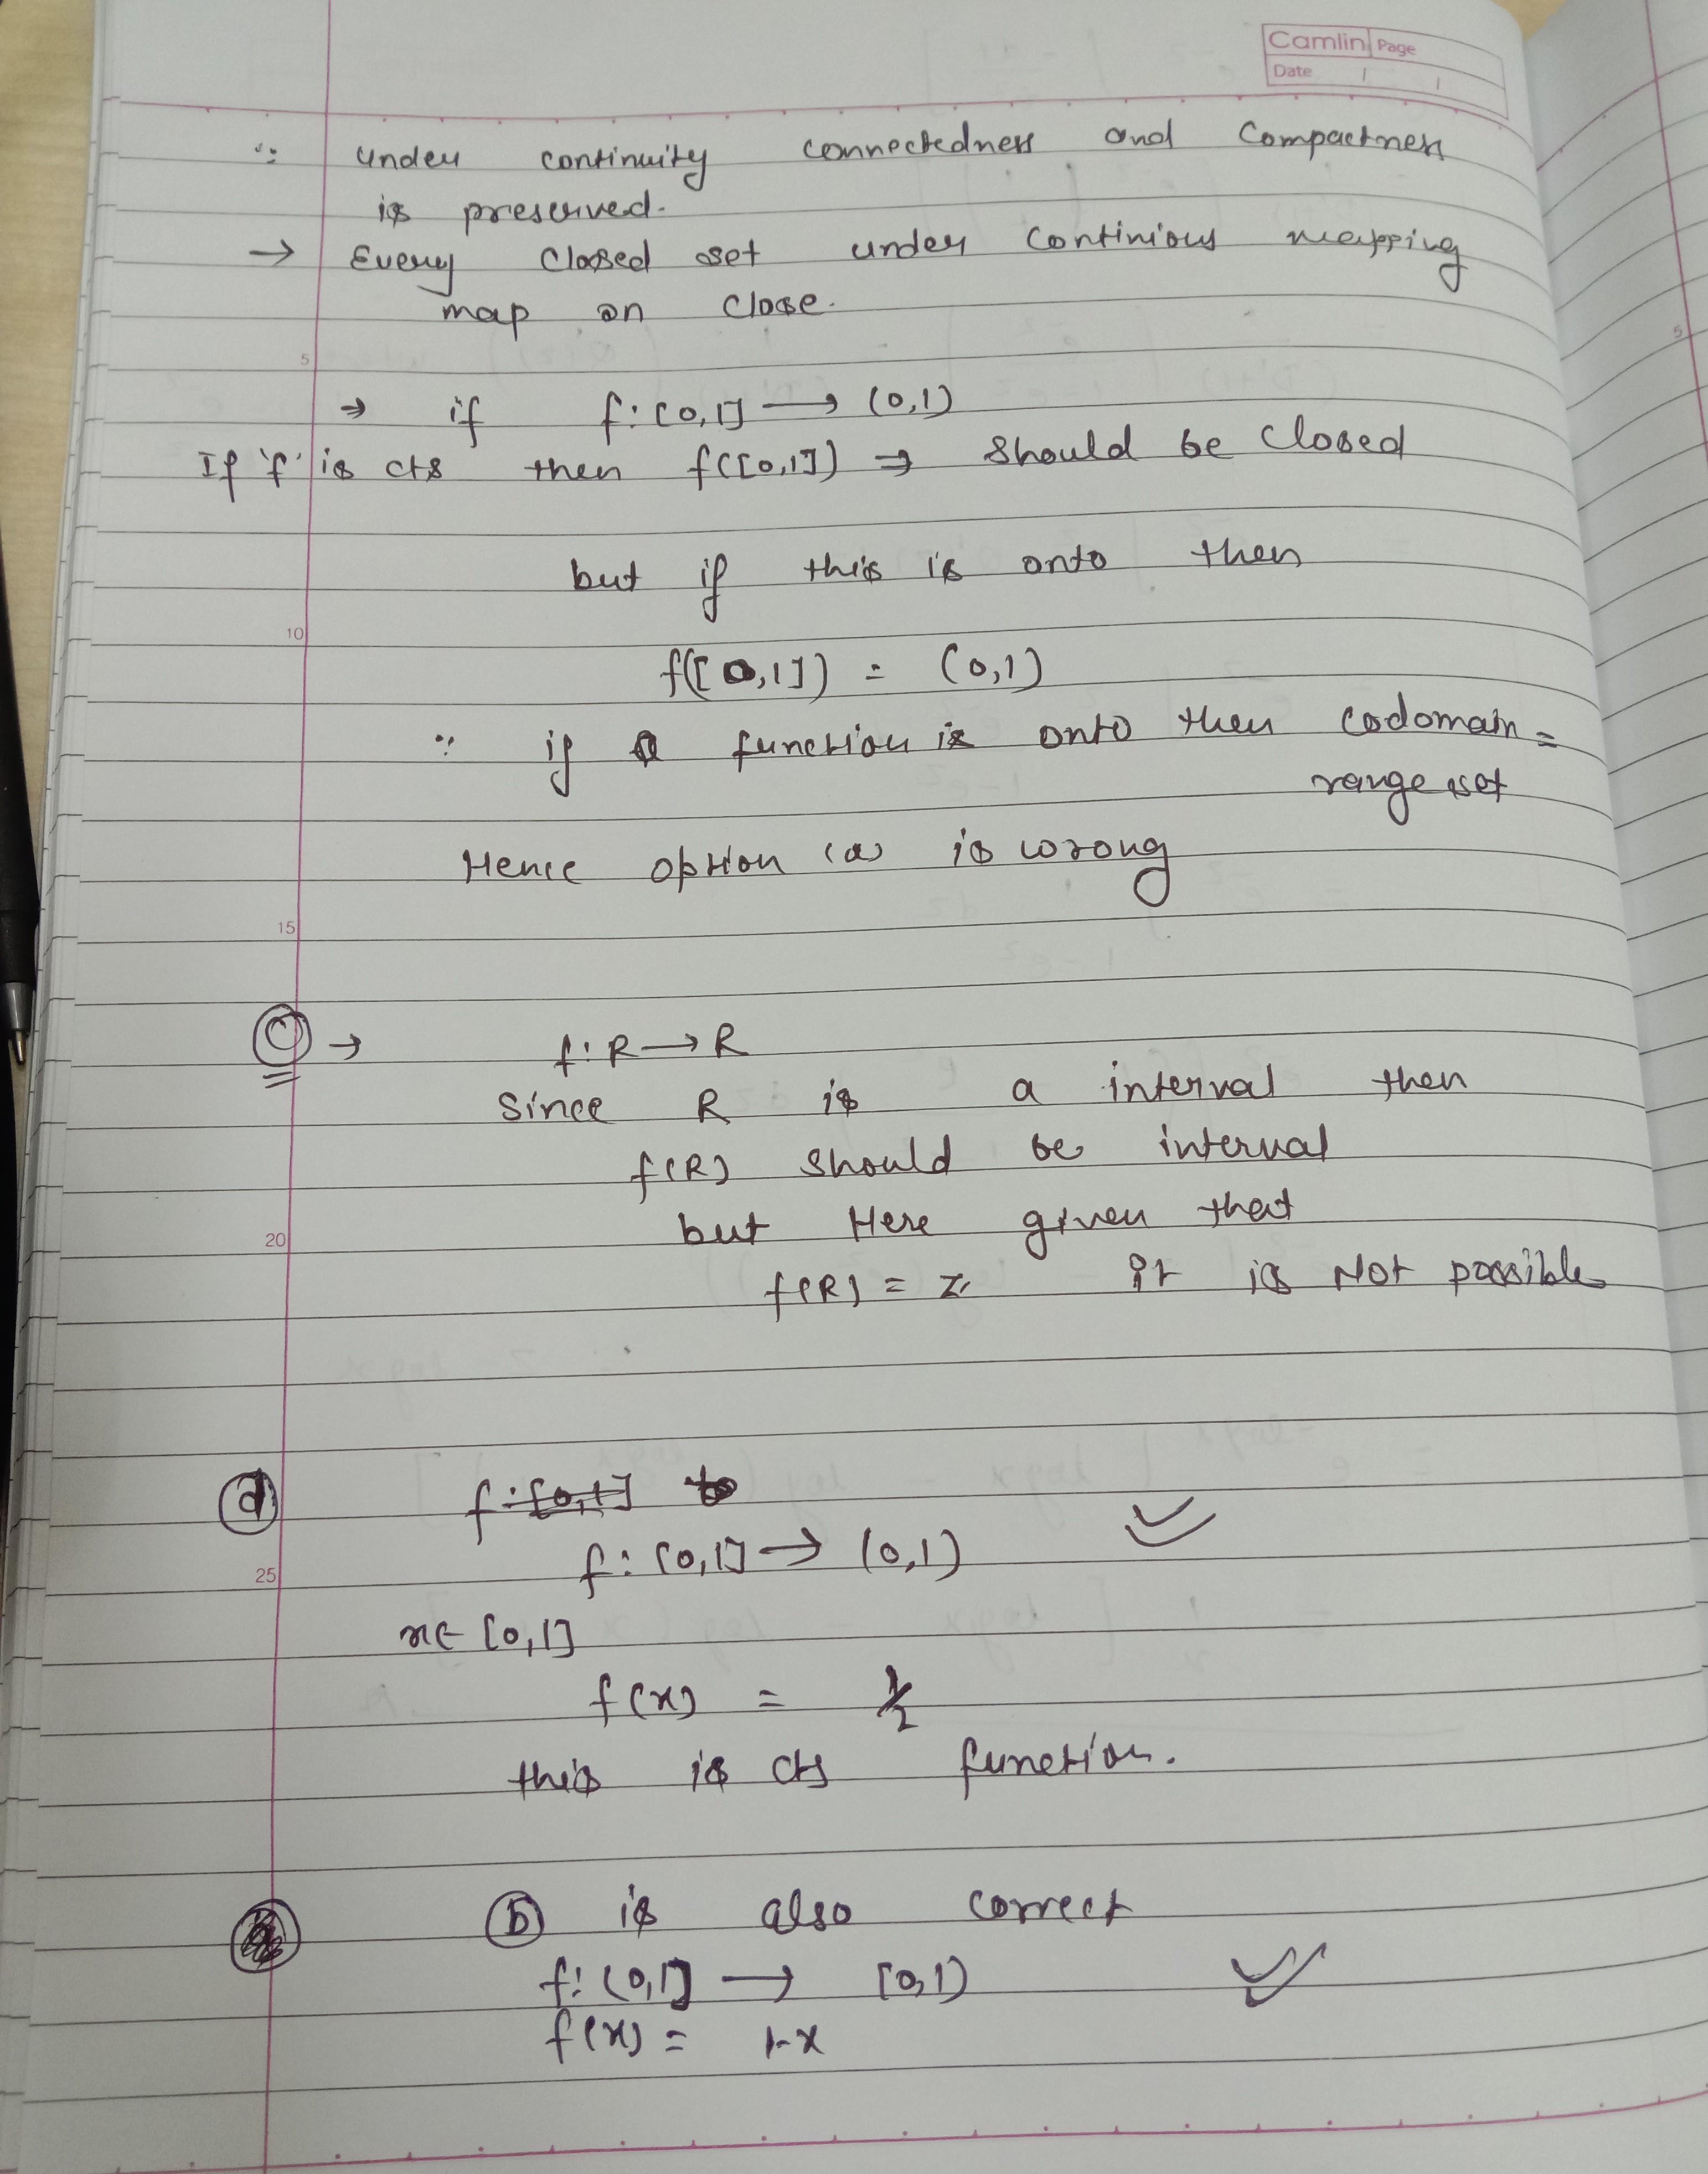 Camlin Page
Date / /
∵ under continuity connectedness and Compactness
is preserved.
→ Every Closed set under continious mapping
map on close.
5
→ if f: [0,1] ⟶ (0,1)
If 'f' is cts then f([0,1]) → should be closed
but if this is onto then
10
f([0,1]) = (0,1)
∵ if a function is onto then codomain =
range set
Hence option (a) is wrong
15
(C) → f: R → R
Since R is a interval then
f(R) should be interval
but Here given that
20
f(R) = Z it is Not possible
(d) f: [0,1] to
f: [0,1] → (0,1)
25
x∈ [0,1]
f(x) = 1/2
this is cts function.
(b) is also correct
f: (0,1] ⟶ [0,1)
f(x) = 1-x